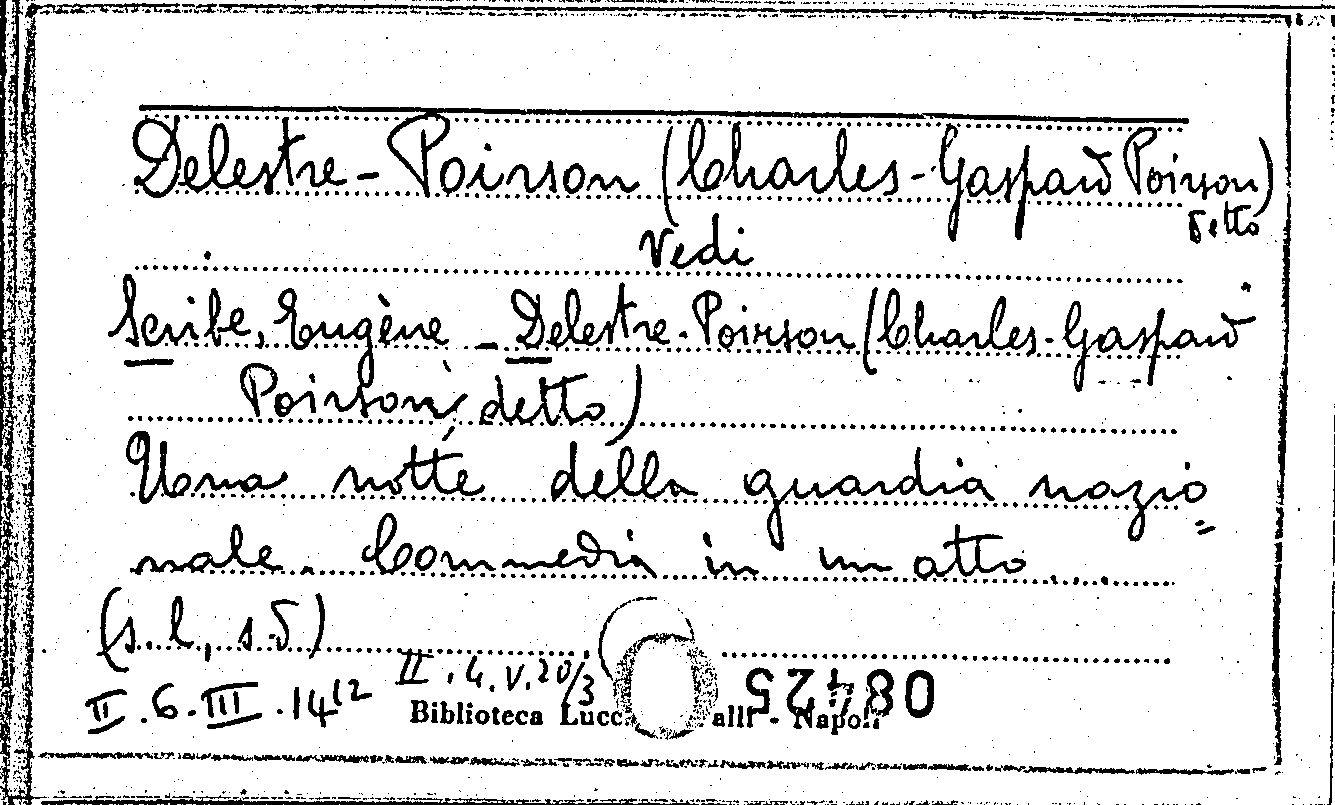 Delestre-Poirson (Charles-Gaspard Poirson)
detto
Vedi
Scribe, Eugène - Delestre-Poirson (Charles-Gaspard
Poirson, detto)
Una notte della guardia nazio=
nale. Commedia in un atto....
(s.l., s.d)
II.4.V.20/3
II.6.III.14¹²
Biblioteca Lucc alli - Napoli
08425